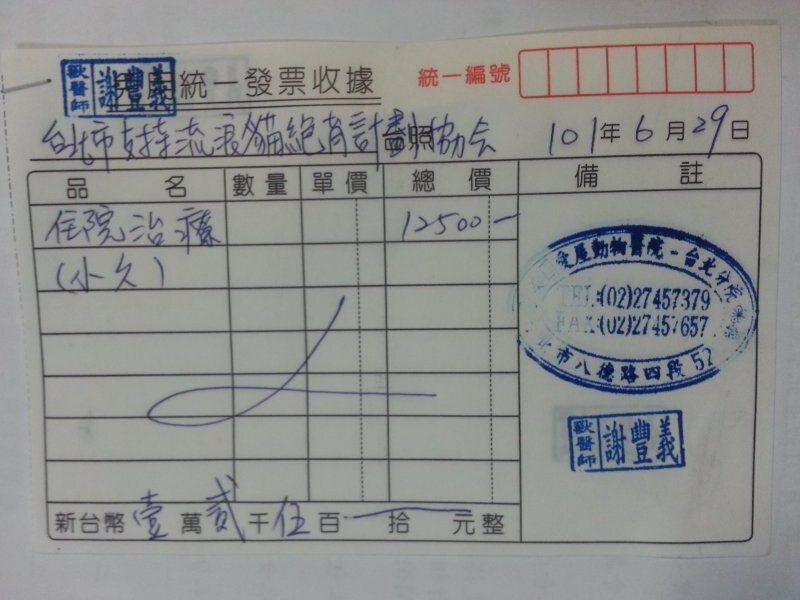 獸醫師 謝豐義
免用統一發票收據
統一編號
台北市支持流浪貓絕育計劃協会 台照
101年6月29日
品名 數量 單價 總價 備註
住院治療 12500-
(小久)
動物醫院-台北分院
TEL:(02)27457379
FAX:(02)27457657
市八德路四段52
獸醫師 謝豐義
新台幣壹萬貳千伍百拾元整